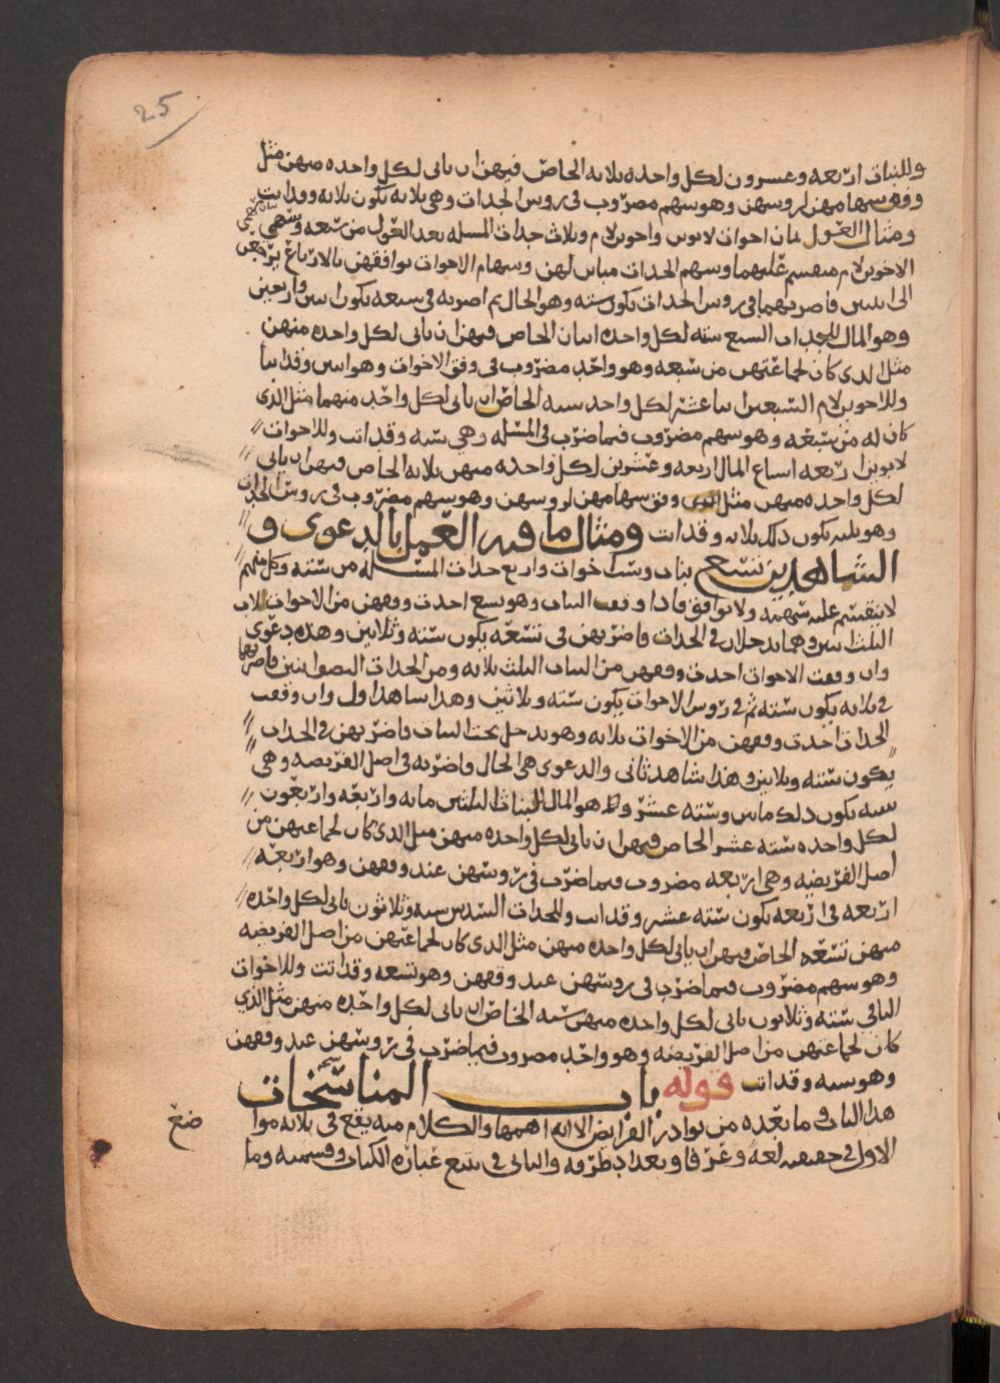 25
وللبنات اربعه وعشرون لكل واحده ثلاثه الخاص فيهن ان ياتي لكل واحده منهن مثل
وفق سهامهن لروسهن وهو سهم مضروب في روس الجدات وهي ثلاثه تكون ثلاثه وقد اتت
ومثال العول ثمان اخوات لابوين واخوين لام وثلاث جدات المسله بعد العول من سبعه وسهمي
الاخوين لام منقسم عليهما وسهم الجدات مباين لهن وسهام الاخوات توافقهن بالارباع يرجعن
الى اثنين فاضربهما في روس الجدات تكون سته وهو الحال ثم اضربه في سبعه يكون اثنين واربعين
وهو المال للجدات السبع سته لكل واحده اثنان الخاص فيهن ان ياتي لكل واحده منهن
مثل الذي كان لجماعتهن من سبعه وهو واحد مضروب في وفق الاخوات وهو اثنين وقد اتيا
وللاخوين لام السبعين اثنا عشر لكل واحد سته الخاص ان ياتي لكل واحد منهما مثل الذي
كان له من سبعه وهو سهم مضروب فيما ضرب في المسله وهي سته وقد اتت وللاخوات
لابوين اربعه اسباع المال اربعه وعشرين لكل واحده منهن ثلاثه الخاص فيهن ان ياتي
لكل واحده منهن مثل الذي وفق سهامهن لروسهن وهو سهم مضروب في روس الجدات
وهو ثلثه يكون ذلك ثلاثه وقد اتت ومثال ما فيه العمل بالدعوى و
الشاهدين تسع بنات وست اخوات واربع جدات المسله من سته وكل منهم
لا ينقسم عليه سهمه ولا يوافق فاذا وقفت البنات وهو تسع اخذت وفقهن من الاخوات ثلاث
الثلث اثنين وهما يدخلان في الجدات فاضربهن في تسعه يكون سته وثلاثين وهذه دعوى
وان وقفت الاخوات اخذت وفقهن من البنات الثلث ثلاثه ومن الجدات النصف اثنين فاضربهما
في ثلاثه يكون سته ثم في روس الاخوات يكون سته وثلاثين وهذا شاهد اول وان وقفت
الجدات اخذت وفقهن من الاخوات ثلاثه وهو يدخل تحت البنات فاضربهن في الجدات
يكون سته وثلاثين وهذا شاهد ثاني والدعوى هي الحال فاضربه في اصل الفريضه وهي
سته يكون ذلك ماتين وسته عشر وهو المال للبنات الثلثين مايه واربعه واربعون
لكل واحده سته عشر الخاص فيهن ان ياتي لكل واحده منهن مثل الذي كان لجماعتهن من
اصل الفريضه وهي اربعه مضروب فيما ضرب في روسهن عند وفقهن وهو اربعه
اربعه في اربعه يكون سته عشر وقد اتت وللجدات السدس سته وثلاثون ياتي لكل واحده
منهن تسعه الخاص فيهن ان ياتي لكل واحده منهن مثل الذي كان لجماعتهن من اصل الفريضه
وهو سهم مضروب فيما ضرب في روسهن عند وفقهن وهو تسعه وقد اتت وللاخوات
الباقي سته وثلاثون ياتي لكل واحده منهن سته الخاص ان ياتي لكل واحده منهن مثل الذي
كان لجماعتهن من اصل الفريضه وهو واحد مضروب فيما ضرب في روسهن عند وفقهن
وهو سته وقد اتت قوله باب المناسخات
هذا الباب وما بعده من نوادر الفرايض الا انه اهمها والكلام منه يقع في ثلاثه مواضع
الاول في حقيقته لغة وعرفا وتعداد طرقه والثاني في تتبع عبارة الكتاب وقسمته وما